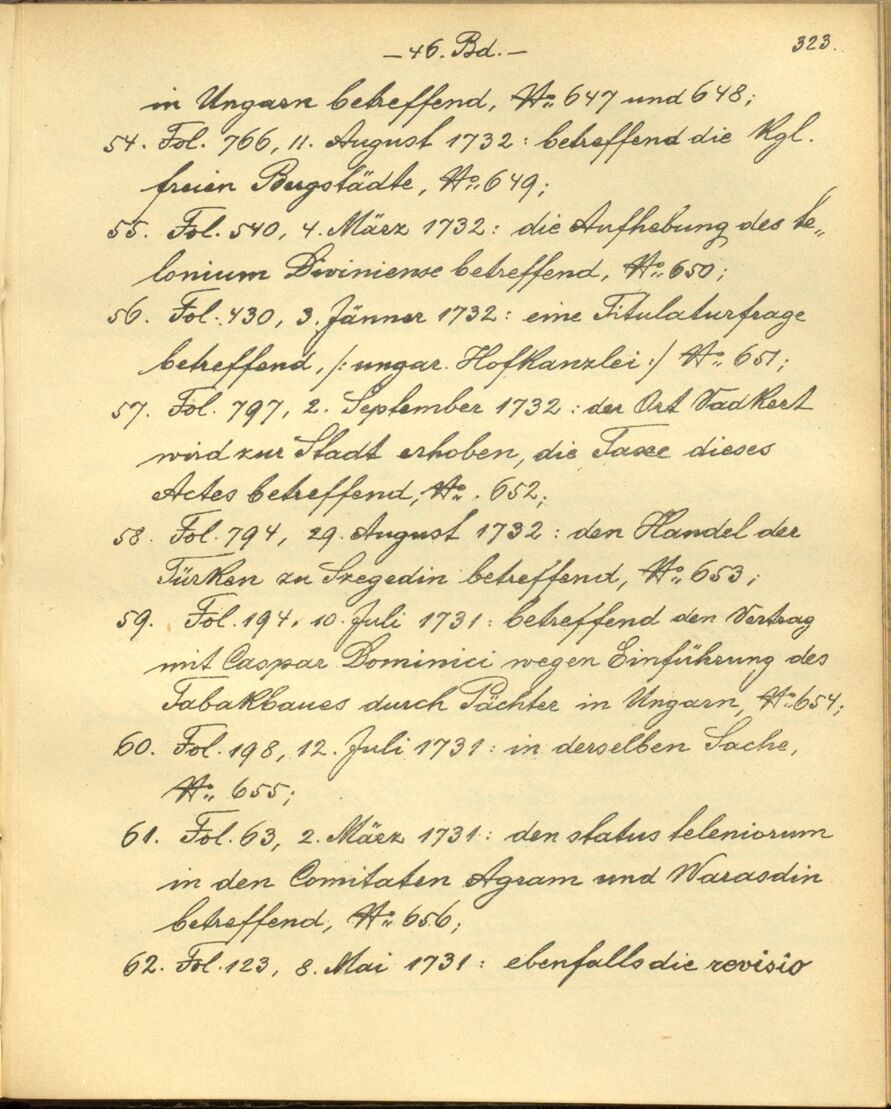 – 46. Bd. –
323.
in Ungarn betreffend, No. 647 und 648;
54. Fol. 766, 11. August 1732: betreffend die Kgl.
freien Bergstädte, No. 649;
55. Fol. 540, 4. März 1732: die Aufhebung des te„
lonium Diviniense betreffend, No. 650;
56. Fol. 430, 3. Jänner 1732: eine Titulaturfrage
betreffend, /: ungar. Hofkanzlei :/ No. 651;
57. Fol. 797, 2. September 1732: der Ort Vadkert
wird zur Stadt erhoben, die Taxe dieses
Actes betreffend, No. 652;
58. Fol. 794, 29. August 1732: den Handel der
Türken zu Szegedin betreffend, No. 653;
59. Fol. 194, 10. Juli 1731: betreffend den Vertrag
mit Caspar Dominici wegen Einführung des
Tabakbaues durch Pächter in Ungarn, No. 654;
60. Fol. 198, 12. Juli 1731: in derselben Sache,
No. 655;
61. Fol. 63, 2. März 1731: den status teleniorum
in den Comitaten Agram und Warasdin
betreffend, No. 656;
62. Fol. 123, 8. Mai 1731: ebenfalls die revisio